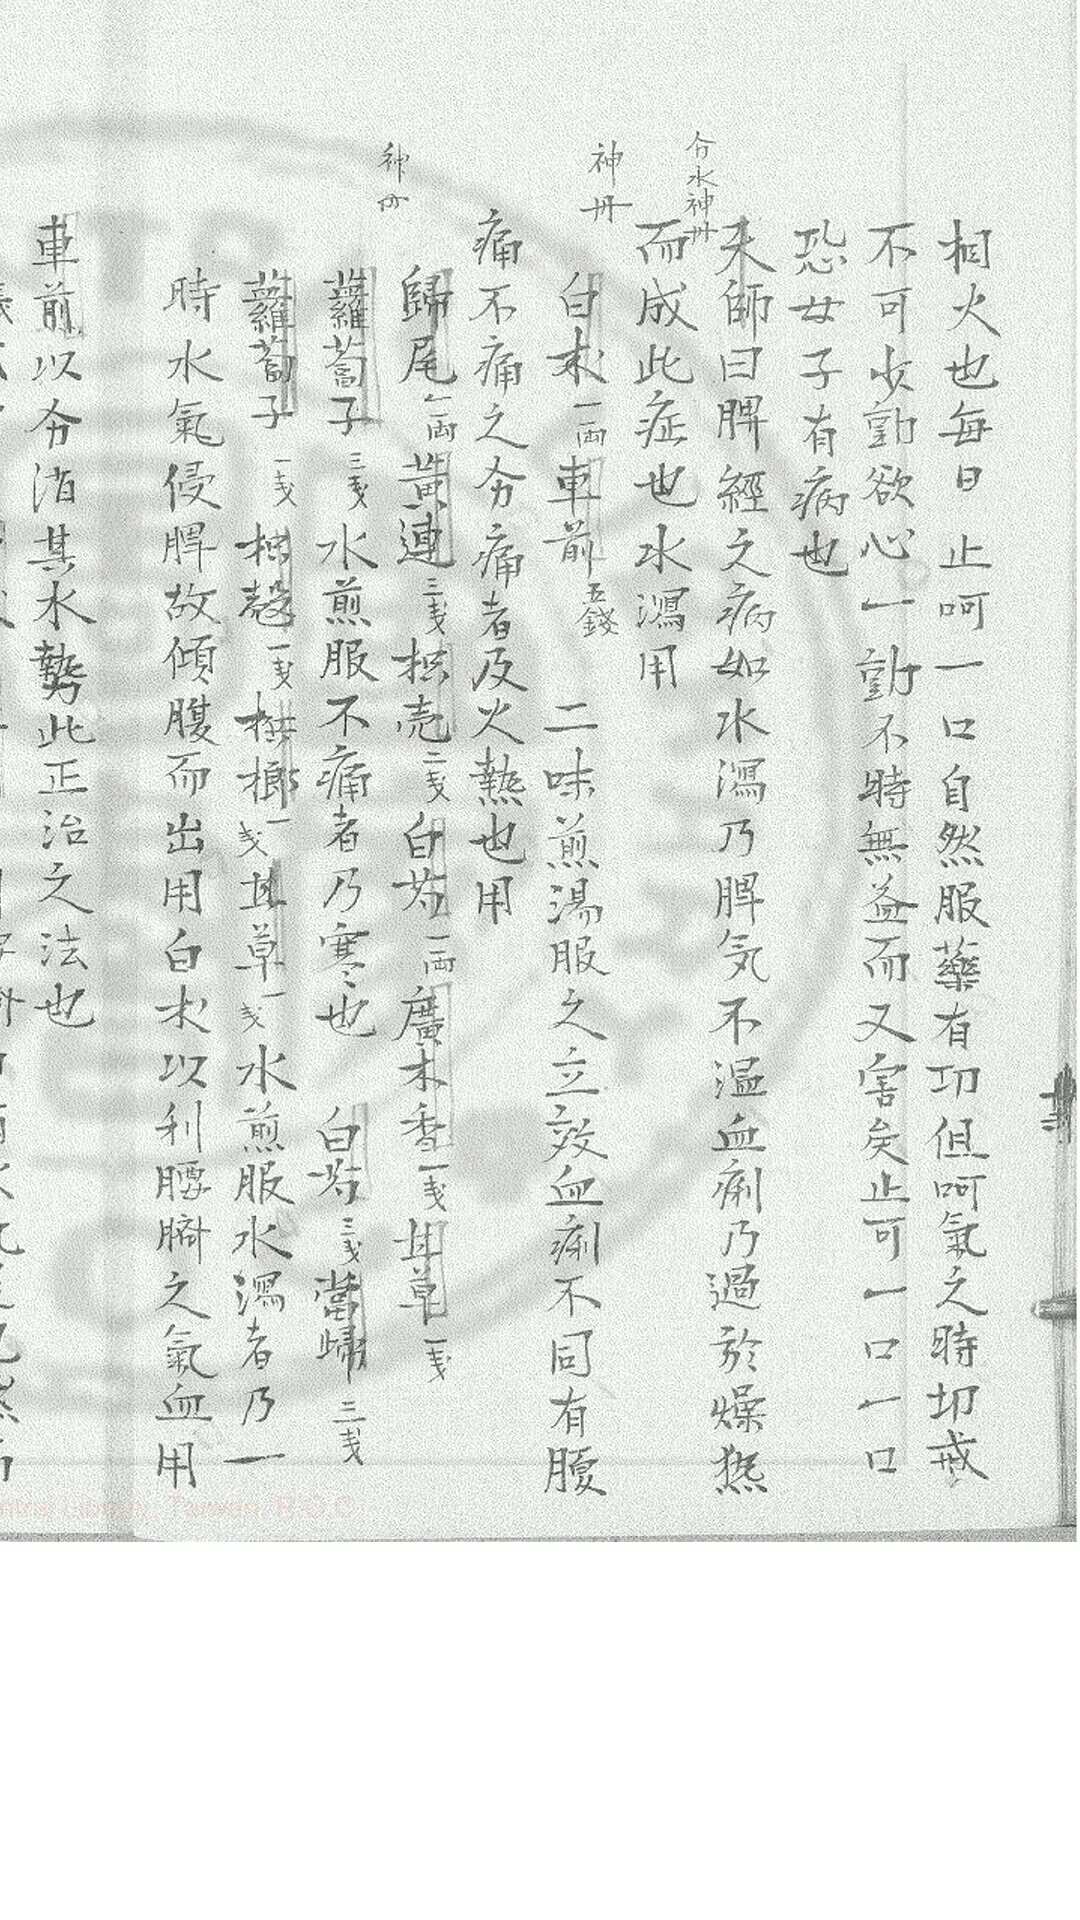 相火也每日止呵一口自然服藥有功但呵氣之時切戒
不可少動欲心一動不特無益而又害矣止可一口一口
恐女子有病也
分水神丹
天師曰脾經之病如水瀉乃脾気不温血痢乃過於燥熱
而成此症也水瀉用
神丹
白朮一両車前五錢 二味煎湯服之立效血痢不同有腹
痛不痛之分痛者及火熱也用
神丹
歸尾一両黃連三戔枳壳二戔白芍一両廣木香一戔甘草一戔
蘿蔔子三戔水煎服不痛者乃寒也 白芍三戔當歸三戔
蘿蔔子一戔枳殼一戔檳榔一戔甘草一戔水煎服水瀉者乃一
時水氣侵脾故傾腹而出用白朮以利腰臍之氣血用
車前以分消其水勢此正治之法也